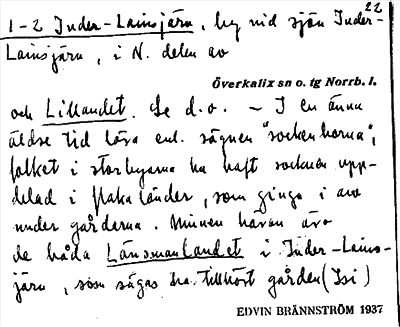 22
1-2 Inder-Lainsjärv, by vid sjön Inder-
Lainsjärv, i N. delen av
Överkalix sn o. tg Norrb. l.
och Lillandet. Se d.o. — I en ännu
äldre tid höra enl. sägnen "socken
folket i storbyarna ha haft socknen upp-
delad i flaka länder, som gingo i arv
under gårdarna. Minnen härav äro
de båda Länsmanlandet i Inder-Lains-
järv, som sägas ha tillhört gården (Isi)
EDVIN BRÄNNSTRÖM 1937